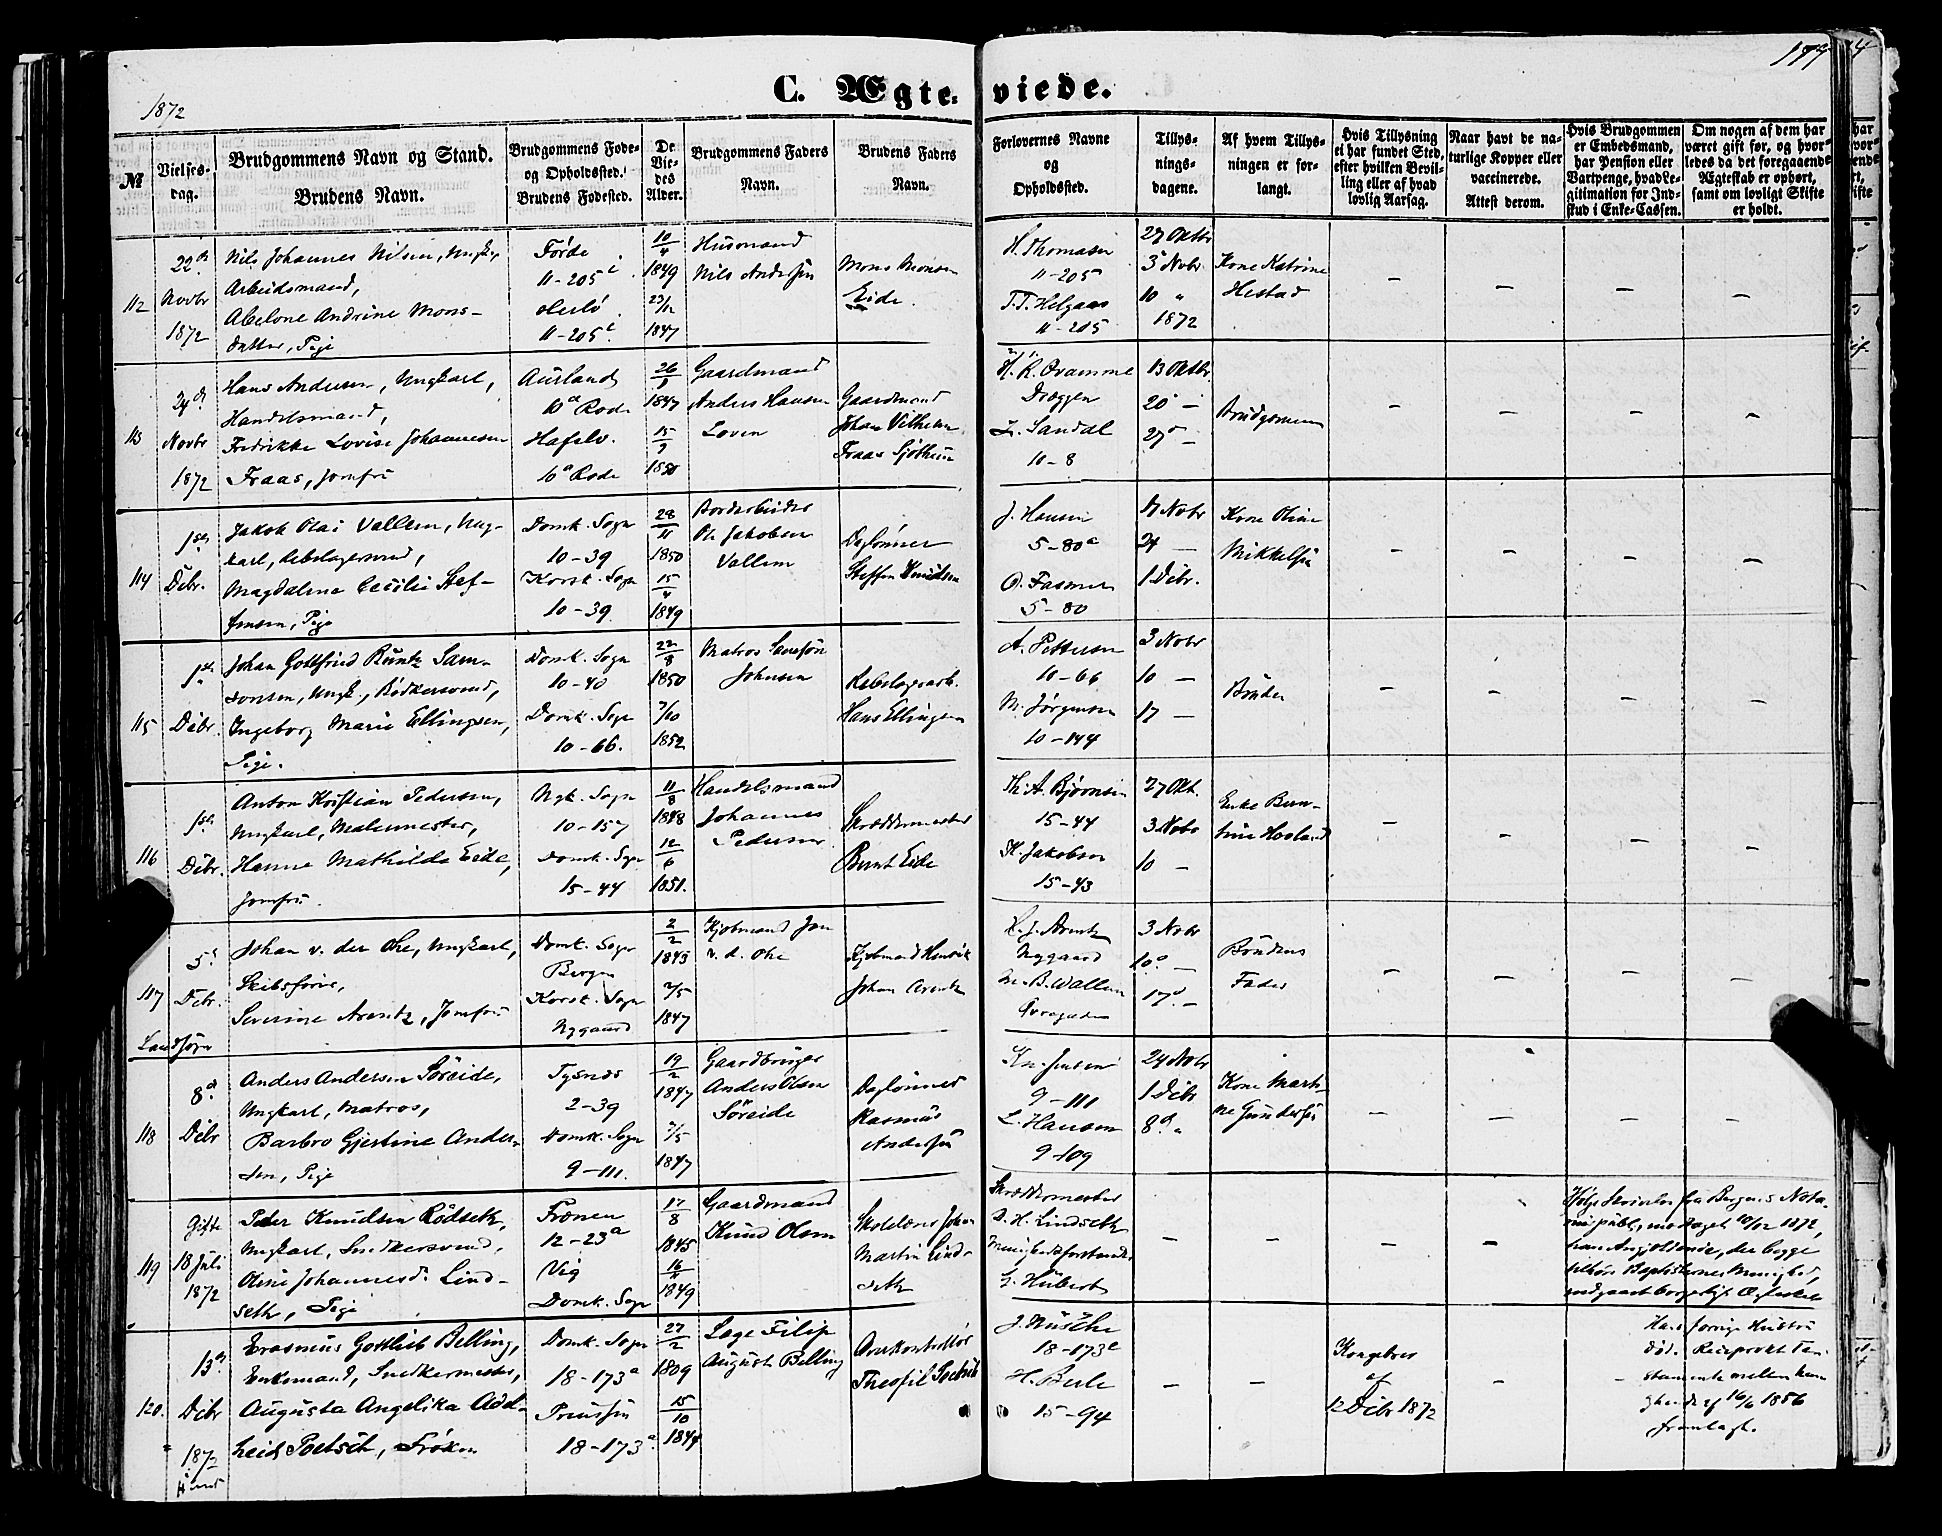 1872
C. Ægteviede.
177
№
Vielses-
dag.
Brudgommens Navn og Stand.
Brudens Navn.
Brudgommens Føde-
og Opholdssted.
Brudens Fødested.
De
Vie-
des
Alder.
Brudgommens Faders
Navn.
Brudens Faders
Navn.
Forlovernes Navne
og
Opholdssted.
Tillys-
nings-
dagene.
Af hvem Tillys-
ningen er for-
langt.
Hvis Tillysning
ei har fundet Sted,
efter hvilken Bevil-
ling eller af hvad
lovlig Aarsag.
Naar havt de na-
turlige Kopper eller
vaccinerede.
Attest derom.
Hvis Brudgommen
er Embedsmand,
har Pension eller
Vartpenge, hvad Le-
gitimation for Ind-
skud i Enke-Cassen.
Om nogen af dem har
været gift før, og hvor-
ledes da det foregaaende
Ægteskab er ophørt,
samt om lovligt Skifte
er holdt.
112
22d
Novbr
1872
Nils Johannes Nilsen, Ungk.,
Arbeidsmand,
Abelone Andrine Mons-
datter, Pige
Førde
11-205 c
Herlö
11-205 c
10/4
1849
23/12
1847
Husmand
Nils Andersen
Mons Monsen
Eide.
H. Thomasen
11-205
T. T. Helgaas
11-205
27 Oktbr
3 Novbr.
10 "
1872
Kone Katrine
Hestad
113
24d
Novbr
1872
Hans Andersen, Ungkarl,
Handelsmand,
Fredrikke Lovise Johannesen
Fraas, Jomfru
Aurland
10a Rode
Hafslo.
10a Rode
26/1
1847
15/9
1850
Gaardmand
Anders Hansen
Loven
Gaardmand
Johan Vilhelm
Fraas Sjøthun
H. R. Qvamme
Dræggen
L. Sandal
10-8
13 Oktbr.
20 -
27 -
Brudgommen
114
1ste
Debr.
Jakob Olai Vallem, Ung-
karl, Rebslagersvend,
Magdalene Cecilie Stef-
fensen, Pige
Domk. Sogn
10-39
Korsk. Sogn
10-39
28/11
1850
15/4
1849
Ole Jakobsen
Vallem
Daglønner
Steffen Knudsen
J. Hansen
5-80 c
O. Fasmer
5-80
17 Novbr
24 -
1 Debr.
Kone Oline
Mikkelsen
115
1ste
Debr.
Johan Gottfried Küntz Sam-
sonsen, Ungk., Bødkersvend,
Ingeborg Marie Ellingsen,
Pige.
Domk. Sogn
10-40
Domk. Sogn
10-66.
22/8
1850
7/10
1852
Matros Samson
Johnsen
Rebslagerarb.
Hans Ellingsen
A. Pettersen
10-66
M. Jørgensen
10-144
3 Novbr
10 -
17 -
Bruden
116
1ste
Debr.
Anton Kristian Pedersen,
Ungkarl, Malermester,
Hanne Mathilda Eide,
Jomfru.
Nyk. Sogn
10-157
Domk. Sogn
15-44
11/8
1848
12/6
1851.
Handelsmand
Johannes
Pedersen
Skræddermester
Bernt Eide
Th. A. Bjørnsen
15-44
K. Jakobsen
15-43
27 Okt.
3 Novbr
10 -
Enke Bern-
tine Hovland
117
5te
Debr.
Landsogn
Johan v. der Ohe, Ungkarl,
Skibsfører,
Severine Arentz, Jomfru
Domk. Sogn
Bergen
Korsk. Sogn
Nygaard
2/2
1843
2/5
1847
Kjøbmand Jan
v. d. Ohe
Kjøbmand Henrik
Johan Arentz
H. J. Arentz
Nygaard
M. B. Wallem
3 Novbr
10 -
17 -
Brudens
Fader
118
8d
Debr
Anders Andersen Söreide,
Ungkarl, Matros,
Barbro Gjertine Ander-
sen, Pige
Tysnes
2-39
Domk. Sogn
9-111.
19/2
1847
7/5
1847
Gaardbruger
Anders Olsen
Söreide
Dagløner
Rasmus
Andersen
Kn. Jensen
9-111
L. Hansen
9-109
24 Novbr
1 Debr
8d "
Kone Marti-
ne Gundersen
119
Gifte
18 Juli
1872
Peder Knudsen Rödseth,
Ungkarl, Snedkersvend,
Oline Johannesd. Lind-
seth, Pige
Frænen
12-23a
Vig
Domk. Sogn
17/8
1845
16/11
1849
Gaardmand
Knud Olsen
Skolelærer Johan
Martin Lind-
seth
Skræddermester
D. H. Lindseth
Menighedsforstander
G. Hübert
Ifølge Skrivelse fra Bergens Nota-
rius publ., modtaget 10/12 1872,
have Angjældende, der begge
tilhøre Baptisternes Menighed,
indgaaet borgerligt Ægteskab
120.
13d
Debr
1872
Erasmus Gottlieb Belling,
Enkemand, Snedkermester,
Augusta Angelika Adel-
heid Poetsch, Frøken
Domk. Sogn
18-173a
Preussen
18-173a.
27/2
1809
15/10
1844
Læge Filip
August Belling
Theofil Poetsch
J. Küsche
18-173 c
H. Berle
15-94
Kongebrev
af
12 Debr 1872
Hans forrige Hustru
död. Reciprokt Te-
stamente mellem ham
og hende af 16/6 1856
fremlagt.